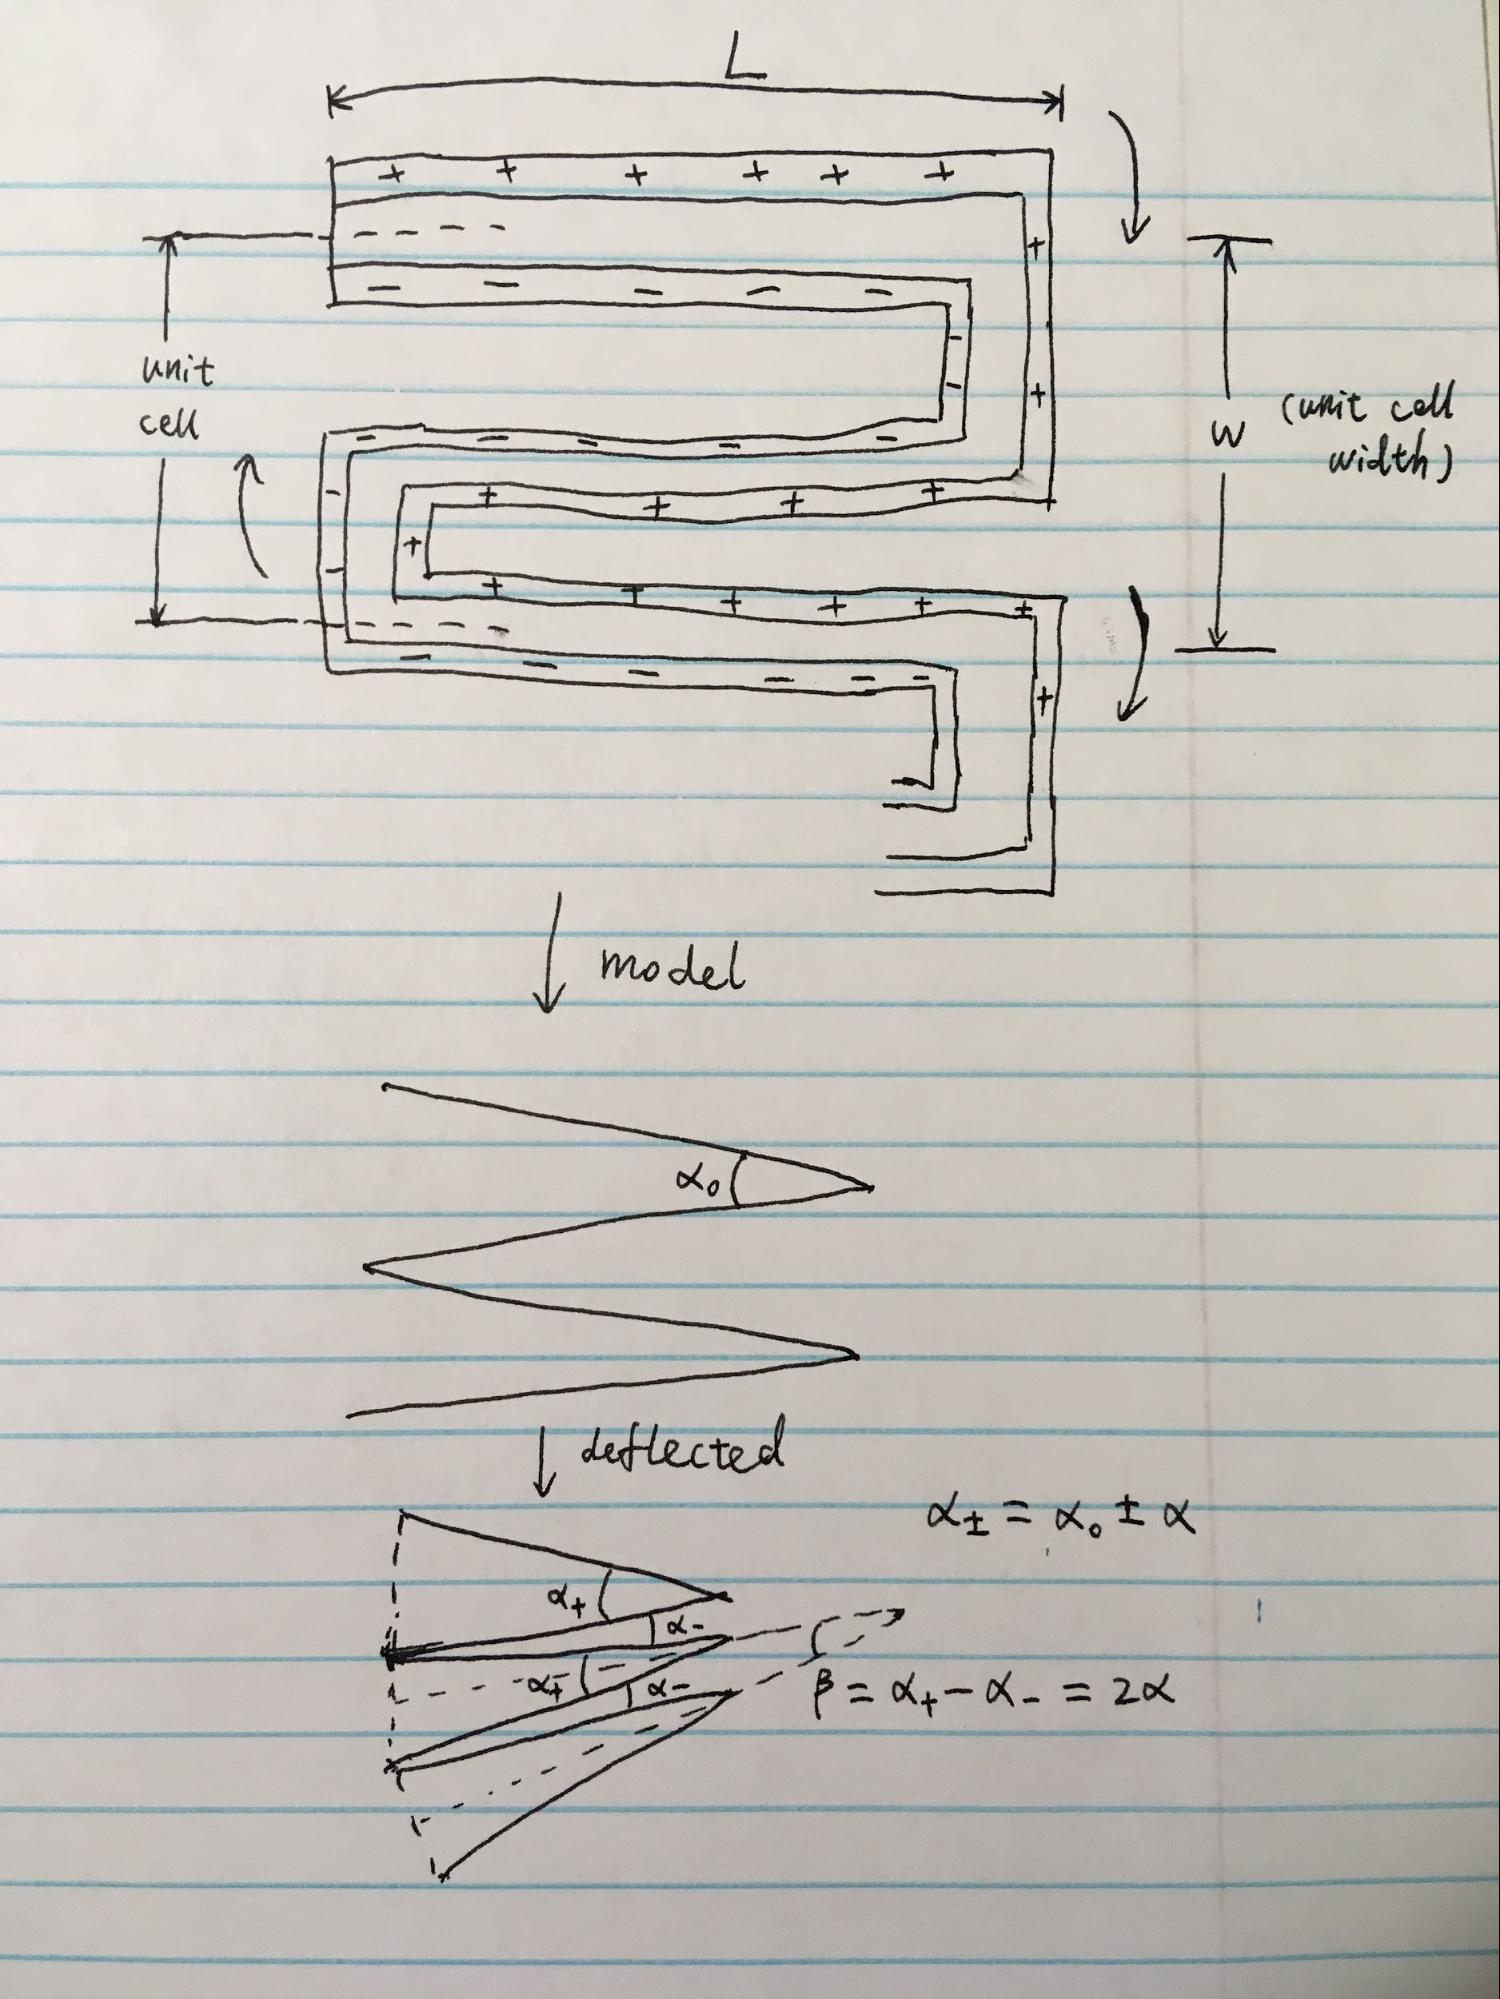 L
+ + + + + +
+
- - - - -
-
unit
cell
-
+
W (unit cell
width)
- - - - -
+ + + +
-
+
-
+ + + + + +
- - - - - -
+
model
α₀
deflected
α± = α₀ ± α
α₊
α₋
α₊ α₋
β = α₊ - α₋ = 2α